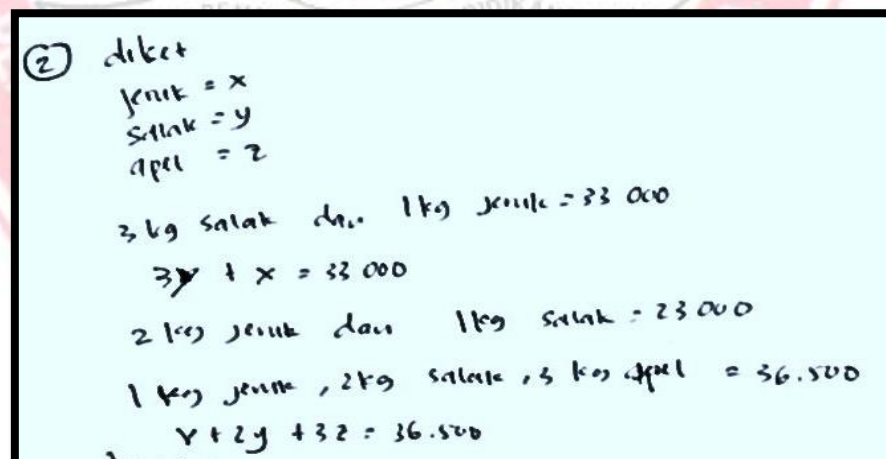 ② diket
jeruk = x
salak = y
apel = z
3 kg salak dan 1 kg jeruk = 33 000
3y + x = 33 000
2 kg jeruk dan 1 kg salak = 23 000
1 kg jeruk, 2 kg salak, 3 kg apel = 36.500
x + 2y + 3z = 36.500